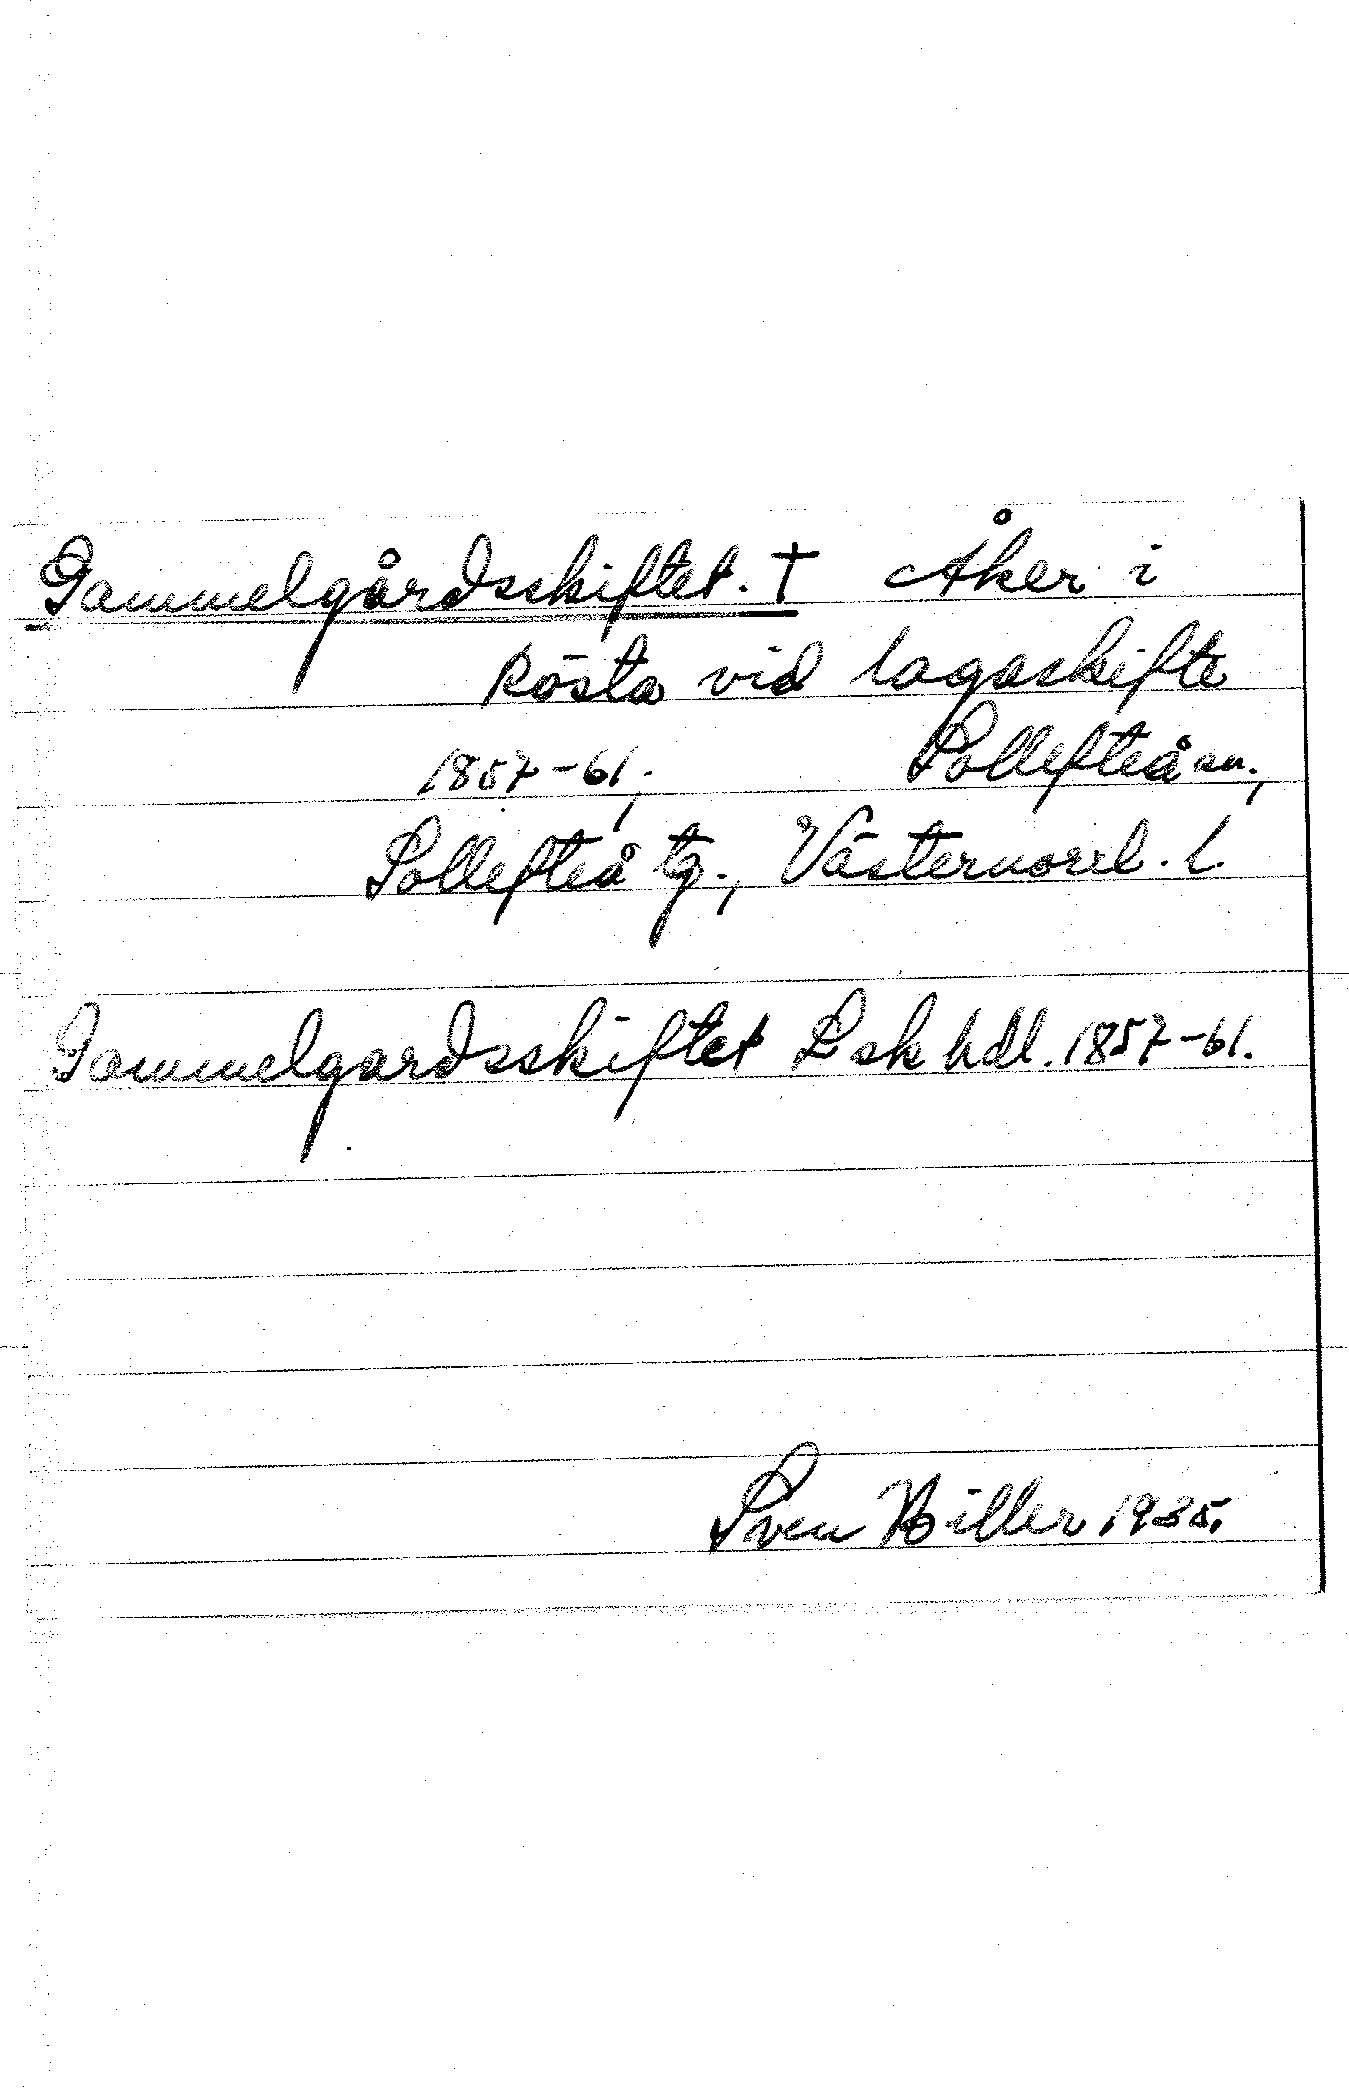 Gammelgårdsskiftet. † Åker i
Rösta vid lagaskifte
1857-61, Sollefteå sn.,
Sollefteå tg., Västernorrl. l.
Gammelgardsskiftet Lskhdl. 1857-61.
Sven Hiller 1935.